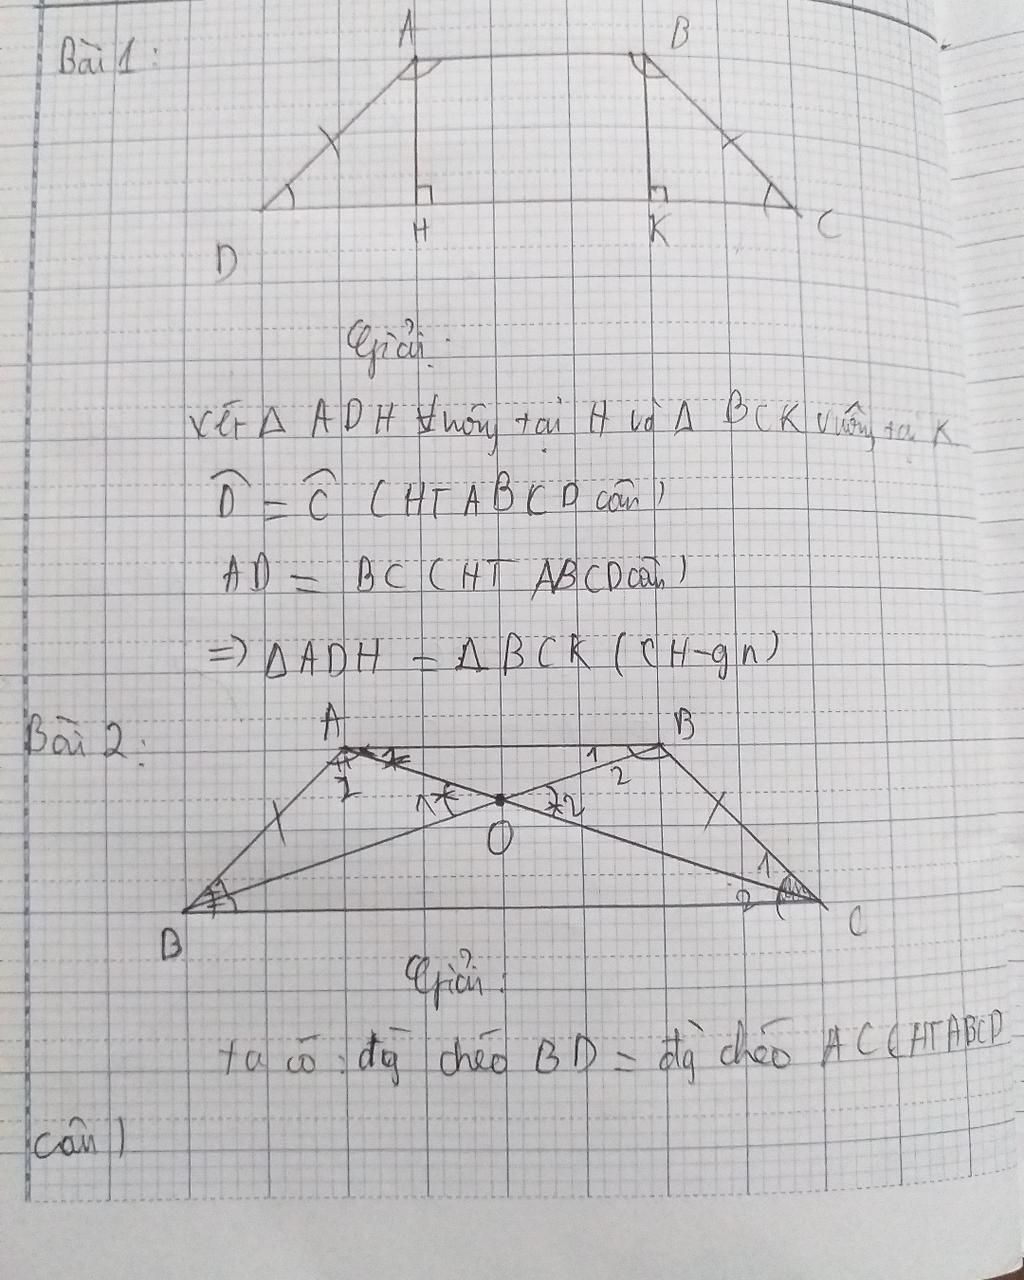 Bài 1:
A B
D H K C
Giải:
Xét Δ ADH vuông tại H và Δ BCK vuông tại K
D̂ = Ĉ (HT ABCD cân)
AD = BC (HT ABCD cân)
=> ΔADH = ΔBCK (CH-gn)
Bài 2:
A B
1 2
2 1 2
O
1
2
B C
Giải:
ta có: đg chéo BD = đg chéo AC (HT ABCD
cân)